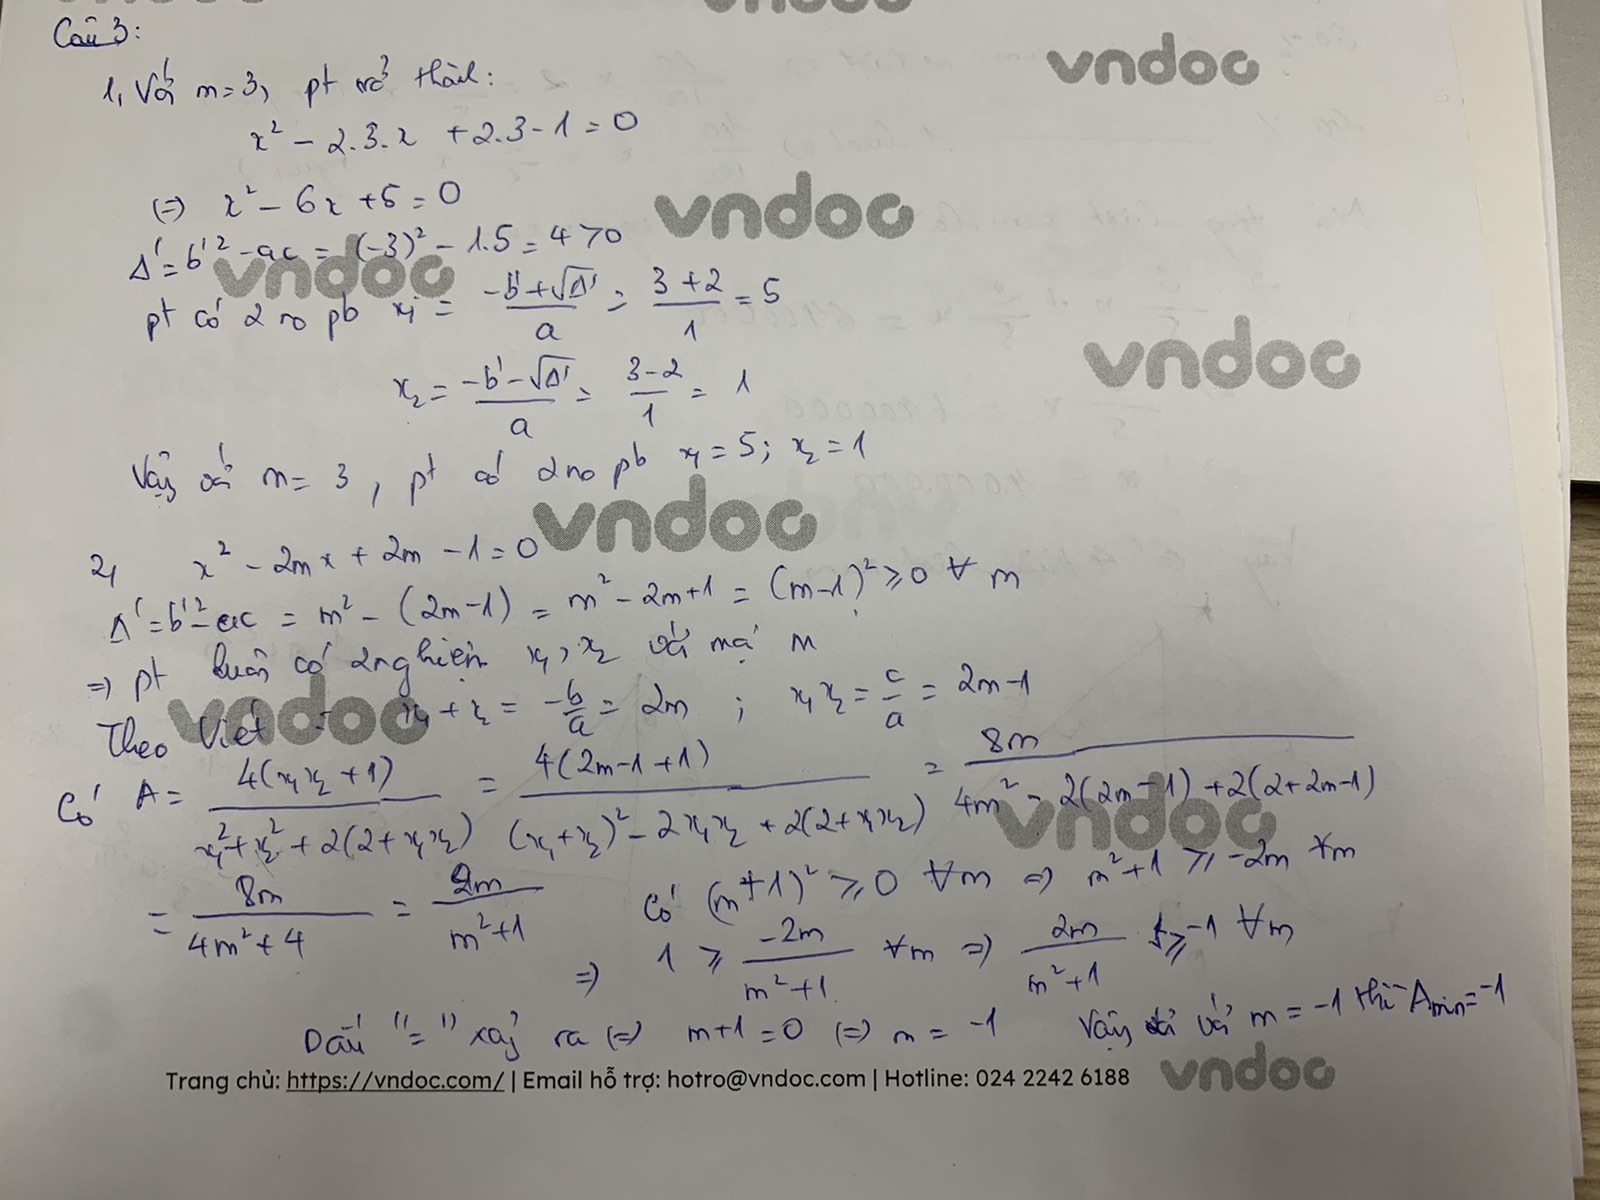 vndoc
Câu 3:
1, Với m=3, pt trở thành:
x² - 2.3.x + 2.3 - 1 = 0
(=) x² - 6x + 5 = 0
Δ' = b'² - ac = (-3)² - 1.5 = 4 > 0
pt có 2 no pb x₁ = (-b' + √Δ')/a = (3+2)/1 = 5
x₂ = (-b' - √Δ')/a = (3-2)/1 = 1
Vậy với m = 3, pt có 2 no pb x₁ = 5; x₂ = 1
2, x² - 2mx + 2m - 1 = 0
Δ' = b'² - ac = m² - (2m-1) = m² - 2m + 1 = (m-1)² ≥ 0 ∀ m
=> pt luôn có 2 nghiệm x₁, x₂ với mọi m
Theo Viét x₁ + x₂ = -b/a = 2m ; x₁x₂ = c/a = 2m-1
Có A = 4(x₁x₂ + 1)/(x₁² + x₂² + 2(2 + x₁x₂)) = 4(2m-1+1)/((x₁+x₂)² - 2x₁x₂ + 2(2+x₁x₂)) = 8m/(4m² - 2(2m-1) + 2(2+2m-1))
= 8m/(4m² + 4) = 2m/(m²+1) Có (m+1)² ≥ 0 ∀m => m²+1 ≥ -2m ∀m
=> 1 ≥ -2m/(m²+1) ∀m => 2m/(m²+1) ≥ -1 ∀m
Dấu "=" xảy ra (=) m+1 = 0 (=) m = -1 Vậy với m = -1 thì Amin = -1
Trang chủ: https://vndoc.com/ | Email hỗ trợ: hotro@vndoc.com | Hotline: 024 2242 6188
vndoc